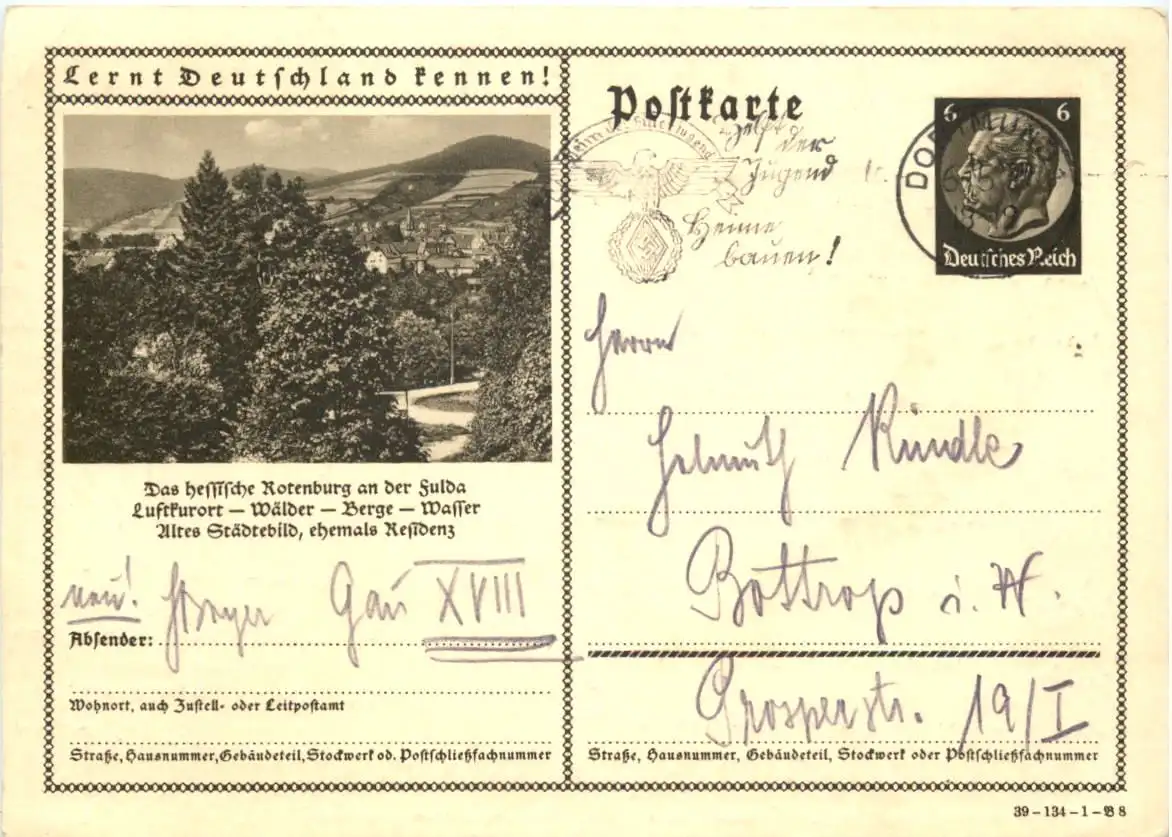 Lernt Deutschland kennen!
Das hessische Rotenburg an der Fulda
Luftkurort – Wälder – Berge – Wasser
Altes Städtebild, ehemals Residenz
neu!
Gau XVIII
Absender:
Wohnort, auch Zustell- oder Leitpostamt
Straße, Hausnummer, Gebäudeteil, Stockwerk od. Postschließfachnummer
Postkarte
Helft
der
Jugend
Heime
bauen!
DORTMUND
6 6
Deutsches Reich
Herrn
Helmuth Kündle
Bottrop i. W.
Prosperstr. 19/I
Straße, Hausnummer, Gebäudeteil, Stockwerk oder Postschließfachnummer
39–134–1–B 8